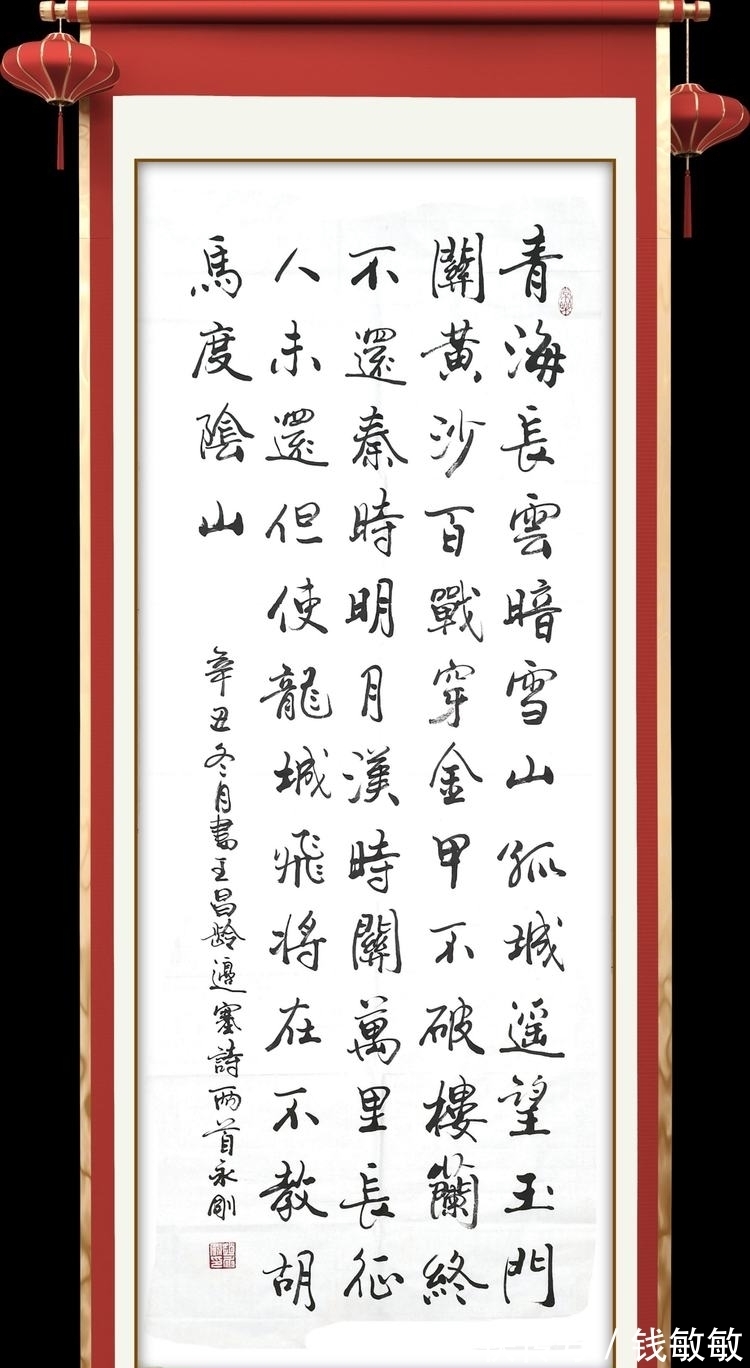 青海長雲暗雪山孤城遥望玉門
關黃沙百戰穿金甲不破樓蘭終
不還秦時明月漢時關萬里長征
人未還但使龍城飛將在不教胡
馬度陰山
辛丑冬月書王昌齡邊塞詩兩首永剛
钱敏敏